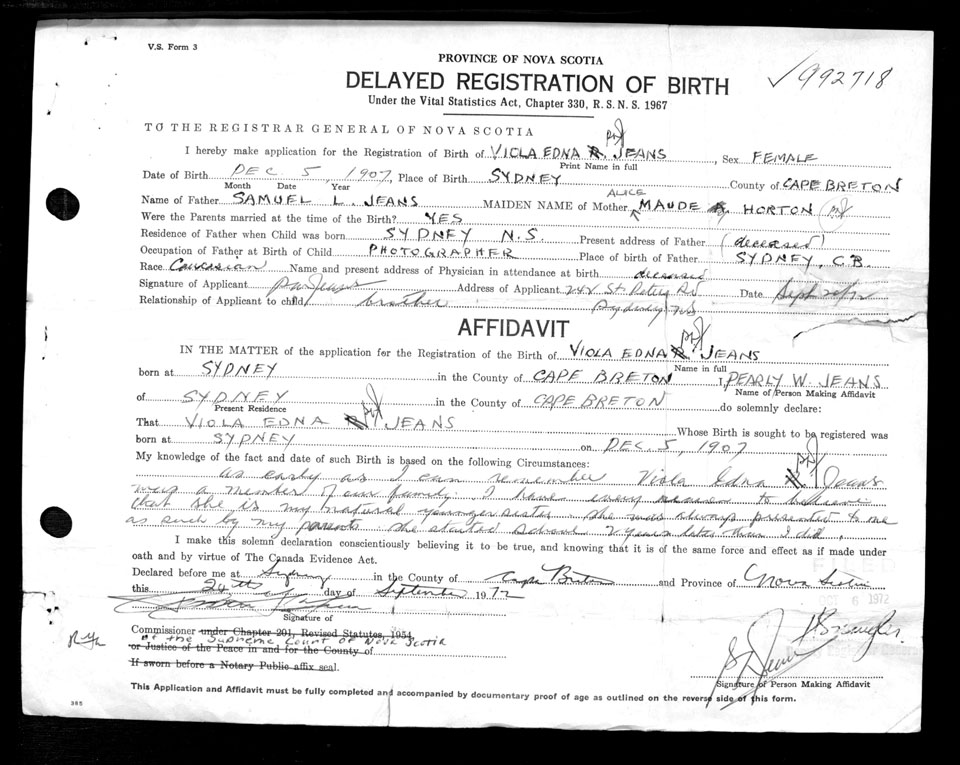 V.S. Form 3
PROVINCE OF NOVA SCOTIA
DELAYED REGISTRATION OF BIRTH
992718
Under the Vital Statistics Act, Chapter 330, R.S.N.S. 1967
TO THE REGISTRAR GENERAL OF NOVA SCOTIA
I hereby make application for the Registration of Birth of VIOLA EDNA R. JEANS, Sex FEMALE
Print Name in full
Date of Birth DEC 5, 1907, Place of Birth SYDNEY County of CAPE BRETON
Month Date Year
ALICE
Name of Father SAMUEL L. JEANS MAIDEN NAME of Mother MAUDE HORTON
Were the Parents married at the time of the Birth? YES
Residence of Father when Child was born SYDNEY N.S. Present address of Father (deceased)
Occupation of Father at Birth of Child PHOTOGRAPHER Place of birth of Father SYDNEY, C.B.
Race Caucasian Name and present address of Physician in attendance at birth deceased
Signature of Applicant PW Jeans Address of Applicant 242 St Peters Rd Date Sept 20/72
Relationship of Applicant to child brother Sydney NS
AFFIDAVIT
IN THE MATTER of the application for the Registration of the Birth of VIOLA EDNA R. JEANS
Name in full
born at SYDNEY in the County of CAPE BRETON I, PEARLY W. JEANS
Name of Person Making Affidavit
of SYDNEY in the County of CAPE BRETON do solemnly declare:
Present Residence
That VIOLA EDNA JEANS Whose Birth is sought to be registered was
born at SYDNEY on DEC. 5, 1907
My knowledge of the fact and date of such Birth is based on the following Circumstances:
as early as I can remember Viola Edna Jeans
was a member of our family. I have every reason to believe
that she is my natural younger sister. She was always presented to me
as such by my parents. She started school 2 years later than I did.
I make this solemn declaration conscientiously believing it to be true, and knowing that it is of the same force and effect as if made under
oath and by virtue of The Canada Evidence Act.
Declared before me at Sydney in the County of Cape Breton and Province of Nova Scotia
this 24th day of September 1972
FILED
6 1972
Signature of
Commissioner under Chapter 201, Revised Statutes, 1954,
of the Supreme Court of Nova Scotia
or Justice of the Peace in and for the County of
If sworn before a Notary Public affix seal.
Signature of Person Making Affidavit
This Application and Affidavit must be fully completed and accompanied by documentary proof of age as outlined on the reverse side of this form.
385